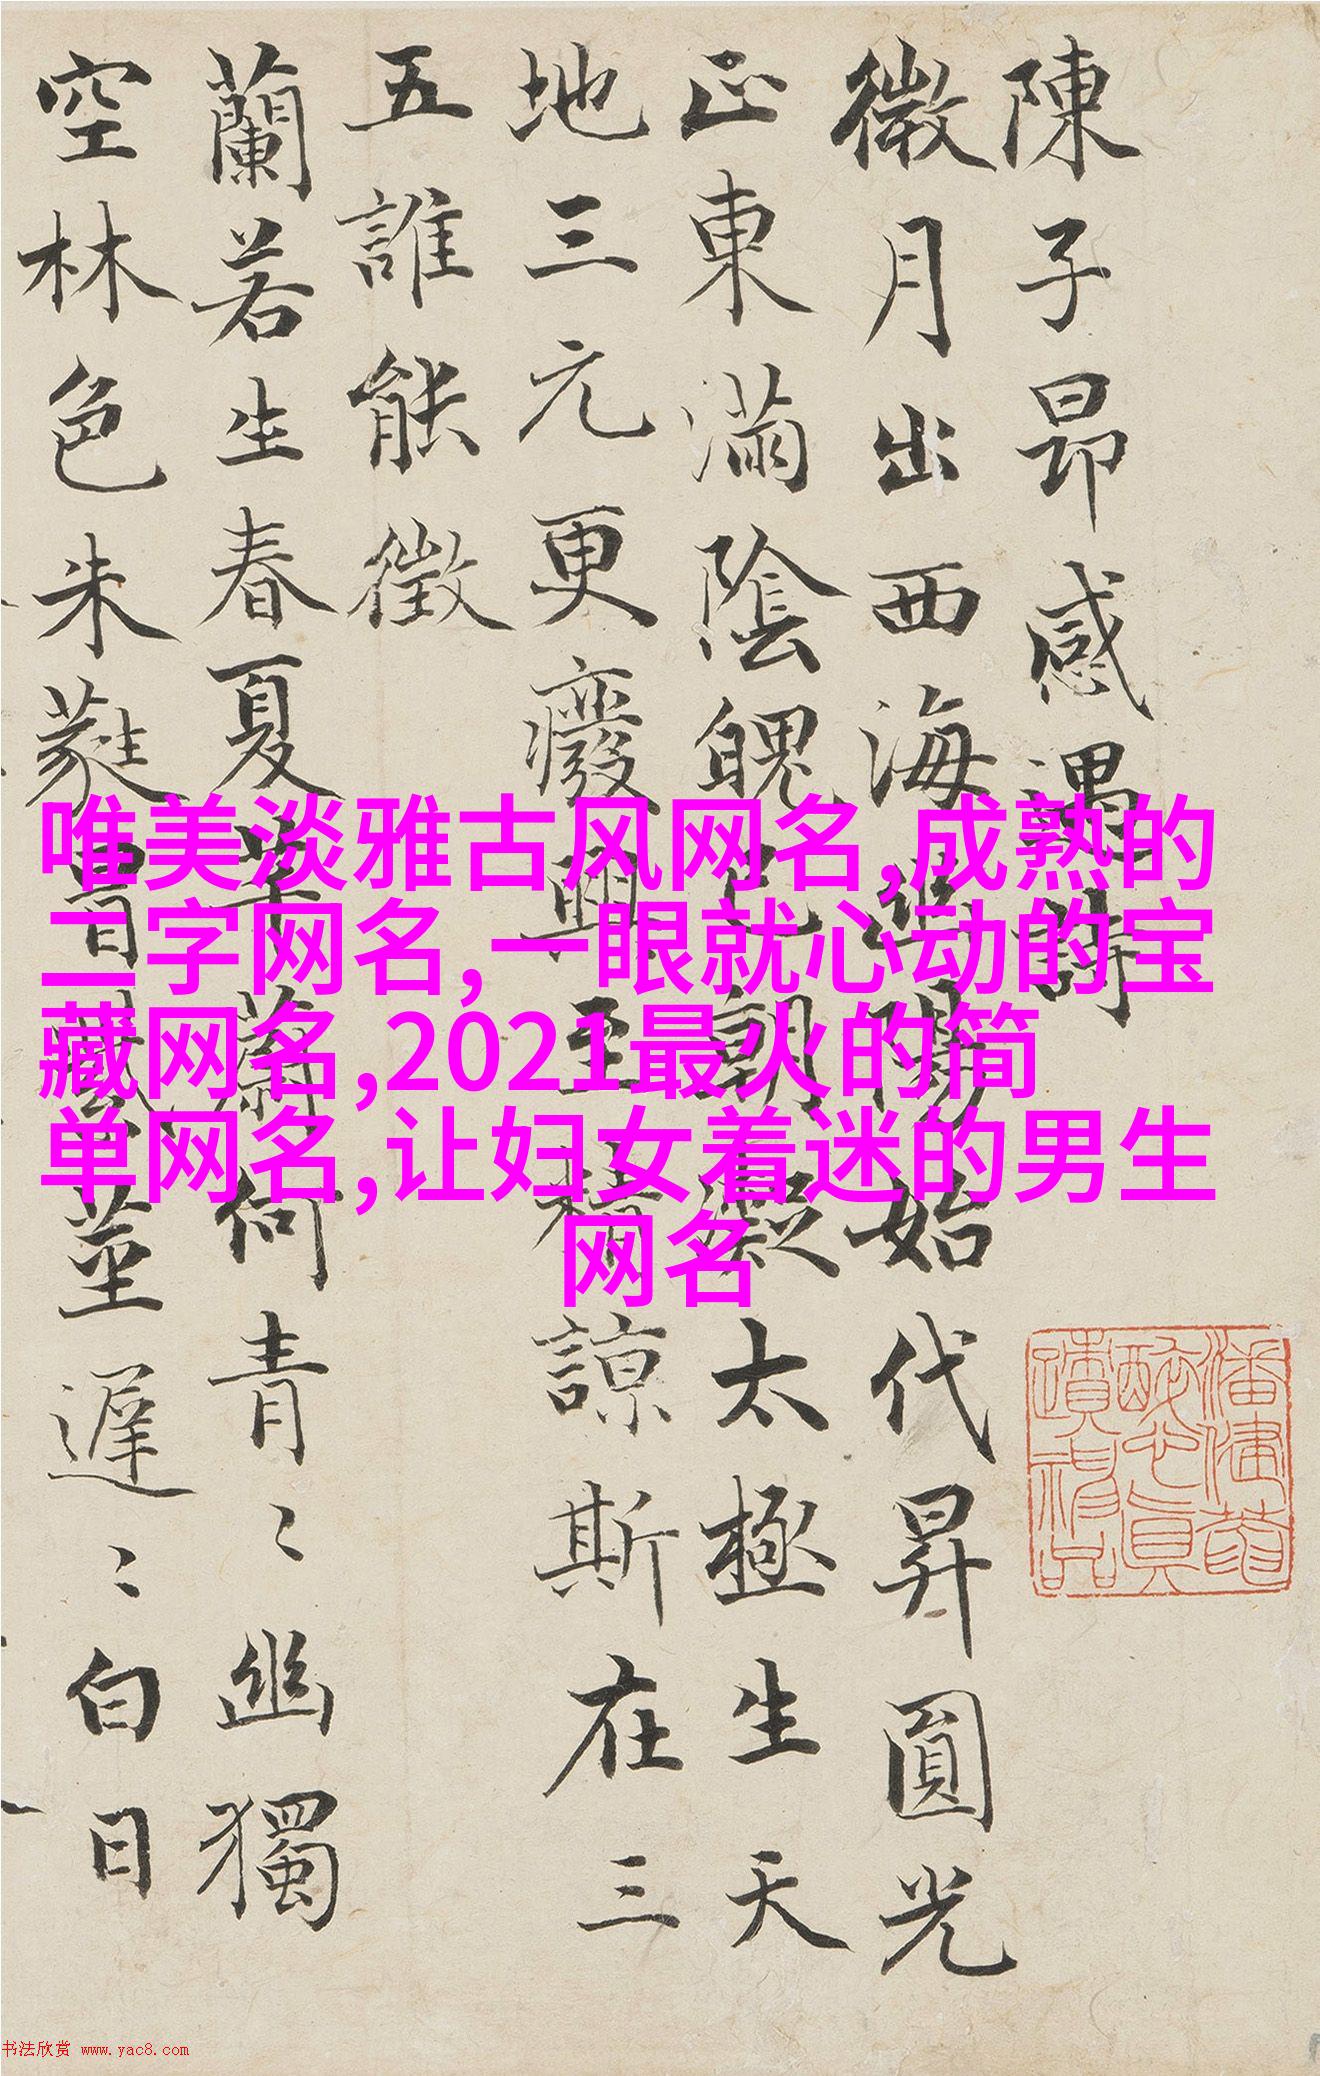 陳子昂感遇詩
微月出西海幽陽始代昇圓光
正東滿陰魄已朝凝太極生天
地三元更癈興至精諒斯在三
五誰能徵
蘭若生春夏芊蔚何青〻幽獨
空林色朱蕤冒紫莖遲〻白日
唯美淡雅古风网名,成熟的
二字网名,一眼就心动的宝
藏网名,2021最火的简
单网名,让妇女着迷的男生
网名
书法欣赏 www.yac8.com